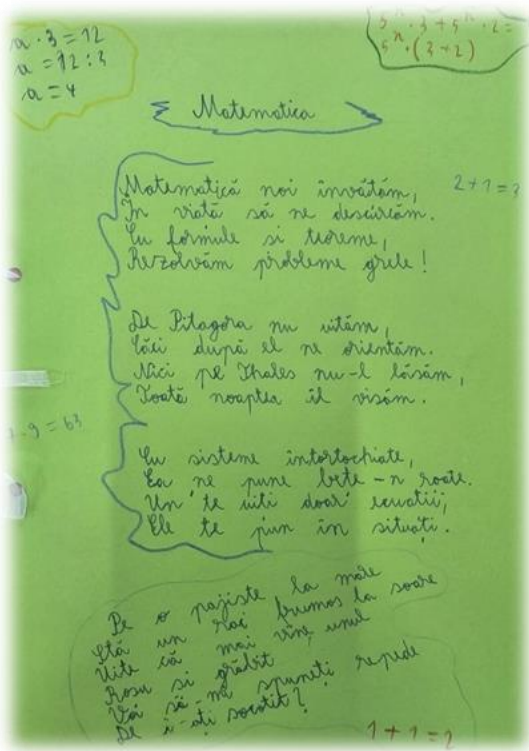 a · 3 = 12
a = 12 : 3
a = 4
5ⁿ · 3 + 5ⁿ · 2 =
5ⁿ · (3 + 2)
Matematica
Matematică noi învățăm,
În viată să ne descurcăm.
Cu formule si teoreme,
Rezolvăm probleme grele!
2 + 1 = 3
De Pitagora nu uităm,
Căci după el ne orientăm.
Nici pe Thales nu-l lăsăm,
Toată noaptea îl visăm.
· 9 = 63
Cu sisteme întortochiate,
Ea ne pune bețe-n roate.
Un' te uiti doar ecuatii,
Ele te pun în situați.
Pe o pajiste la mare
Stă un rac frumos la soare
Uite că mai vine unul
Rosu si grăbit
Voi să-mi spuneti repede
De i-ați socotit?
1 + 1 = 2